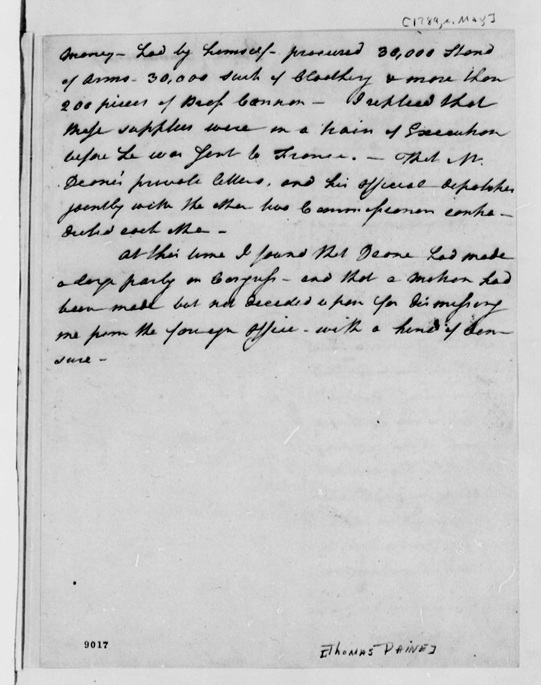 [1789, May]
money – had by himself – procured 30,000 Stand
of Arms – 30,000 suits of Cloathing & more than
200 pieces of Brass Cannon – I replied that
these supplies were in a train of Execution
before he was sent to France. – That Mr.
Deane's private letters, and his official dispatches
jointly with the other two Commissioners contra–
dicted each other –
At this time I found that Deane had made
a large party in Congress – and that a motion had
been made but not decided upon for dismissing
me from the foreign office – with a kind of cen–
sure –
9017
[THOMAS PAINE]